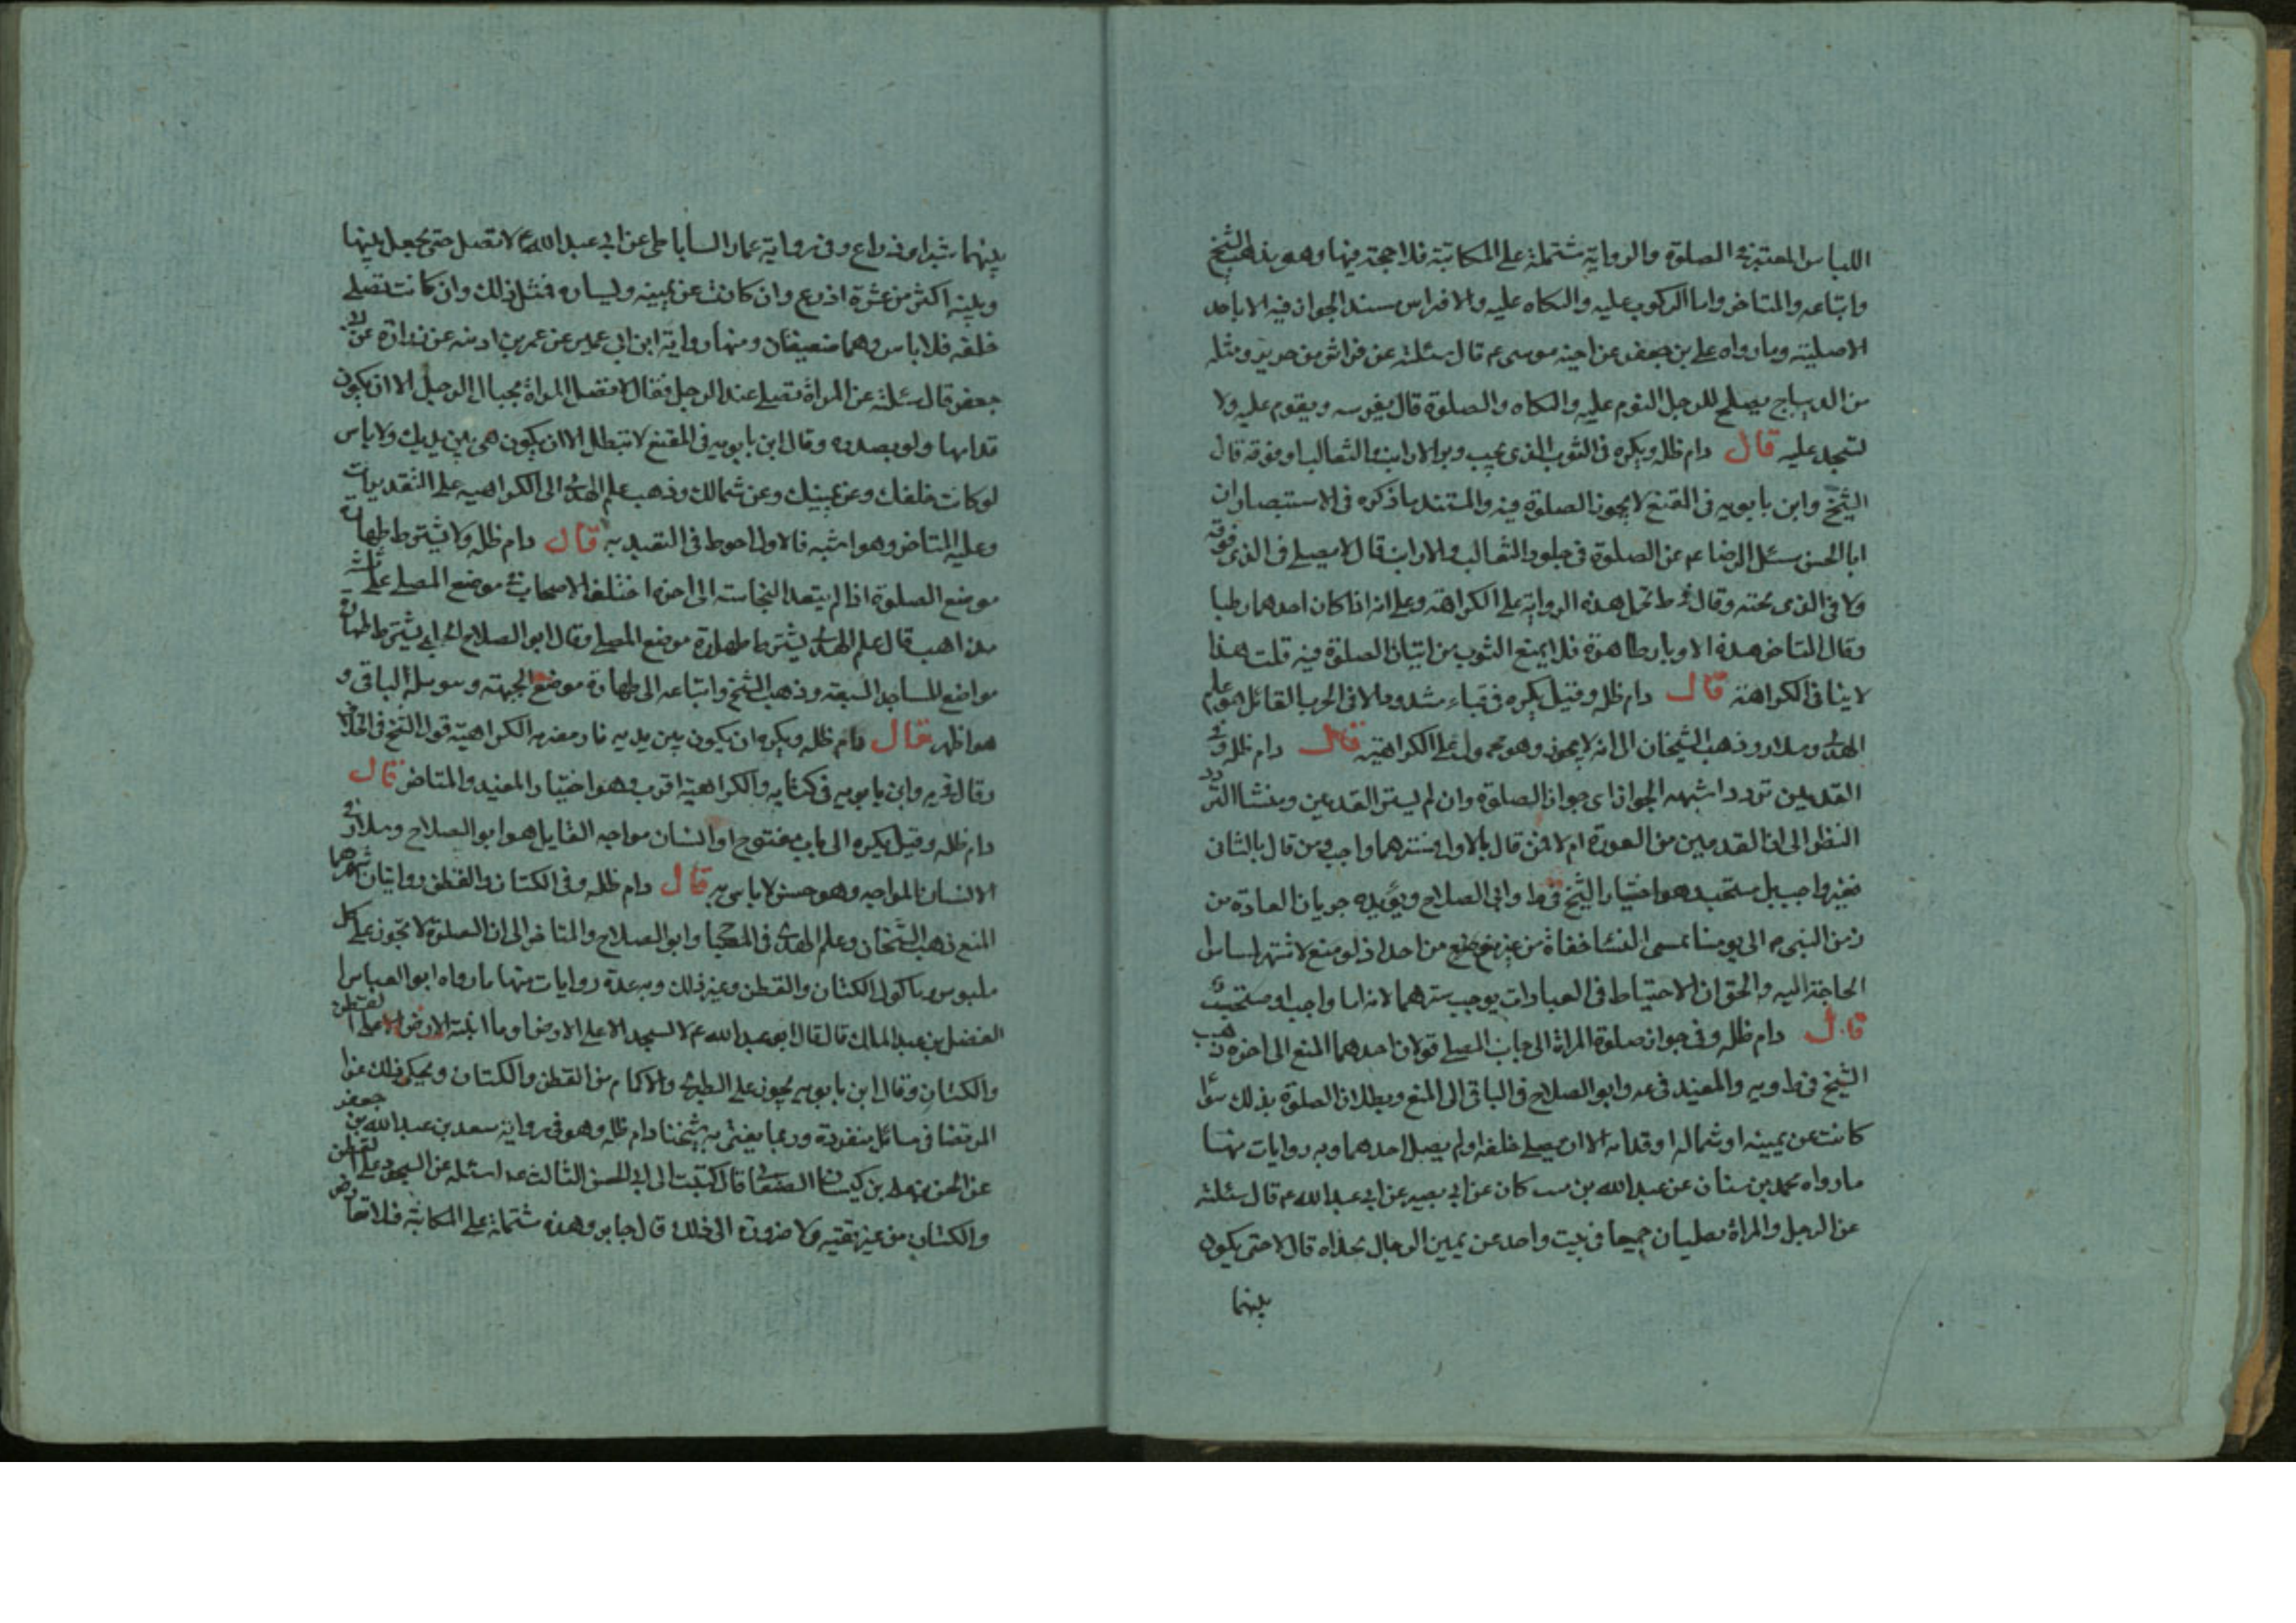 اللباس المعتبر في الصلوة والرواية مشتملة على المكاتبة فلا حجة فيها وهو مذهب الشيخ
واتباعه والمتاخر واما الركوب عليه والتكاه عليه والافراس سند الجواز فيه الاباحة
الاصلية وما رواه على بن جعفر عن اخيه موسى ع قال سئلته عن فراش من حرير ومثله
من الديباج يصلح للرجل النوم عليه والتكاه والصلوة قال يفرسه ويقوم عليه ولا
تسجد عليه قال دام ظله ويكره في الثوب الذى وبر الارانب والثعالب او فوقه قال
الشيخ وابن بابويه في المقنع لا يجوز الصلوة فيه والمستند ما ذكره في الاستبصار ان
ابا الحسن سئل الرضا ع عن الصلوة في جلود الثعالب والارانب قال لا يصلى في الذى فوقه
ولا في الذى تحته وقال في ط تحمل هذه الرواية على الكراهة وعلى انه اذا كان احدهما رطبا
وقال المتاخر هذه الاوبار طاهرة فلا يمنع الثوب من اتيان الصلوة فيه قلت هذا
لا ينافى الكراهة قال دام ظله وقيل يكره في قباء مشدود الا في الحرب القائل هو علم
الهدى وسلار وذهب الشيخان الى انه لا يجوز وهو محمول على الكراهية قال دام ظله وفي
القدمين تردد اشبهه الجواز اى جواز الصلوة وان لم يستر القدمين ومنشا التردد
النظر الى ان القدمين من العورة ام لا فمن قال بالاول فسترهما واجب ومن قال بالثانى
فغير واجب بل مستحب وهو اختيار الشيخ في ط وابى الصلاح ويؤيده جريان العادة من
زمن النبى ص الى يومنا بمسى النسا حفاة من غير منع من احد اذ لو منع لاشتهر لمساس
الحاجة اليه والحق ان الاحتياط في العبادات يوجب سترهما لانه اما واجب او مستحب
قال دام ظله وفي جواز صلوة المراة الى جانب المصلى قولان احدهما المنع الى اخره ذهب
الشيخ في ط ويه والمفيد في عه وابو الصلاح في الباقى الى المنع وبطلان الصلوة بذلك سوا
كانت عن يمينه او شماله او قدامه الا ان يصلى خلفه او لم يصل احدهما وبه روايات منها
ما رواه محمد بن سنان عن عبد الله بن مسكان عن ابى بصير عن ابى عبد الله ع قال سئلته
عن الرجل والمراة يصليان جميعا في بيت واحد عن يمين الرجال بحذاه قال لا حتى يكون
بينهما
بينهما شبر او ذراع وفي رواية عمار الساباطى عن ابى عبد الله ع لا تصل حتى يجعل بينها
وبينه اكثر من عشرة اذرع وان كانت عن يمينه ويساره فمثل ذلك وان كانت تصلى
خلفه فلا باس وهما ضعيفان ومنها رواية ابن ابى عمير عن عمر بن اذينه عن زرارة عن ابى
جعفر قال سئلته عن المراة تصلى عند الرجل فقال لا تصل المراة بحيال الرجل الا ان يكون
قدامها ولو بصدره وقال ابن بابويه في المقنع لا تبطل الا ان يكون هى بين يديك ولا باس
لو كانت خلفك وعن يمينك وعن شمالك وذهب علم الهدى الى الكراهيه على التقديرات
وعليه المتاخر وهو اشبه فالاول احوط في التعبد به قال دام ظله ولا يشترط طهارة
موضع الصلوة اذا لم يتعد النجاسة الى اخره اختلف الاصحاب في موضع المصلى على ثلاثة
مذاهب قال علم الهدى يشترط طهارة موضع المصلى وقال ابو الصلاح الحلبى يشترط طهارة
مواضع المساجد السبعة وذهب الشيخ واتباعه الى طهارة موضع الجبهة وسوسله الباقى و
هو اظهر قال دام ظله ويكره ان يكون بين يديه نار مضرمه الكراهية قول الشيخ في الخلاف
وقال في يه وابن بابويه في كتابه والكراهية اقرب وهو اختيار المفيد والمتاخر قال
دام ظله وقيل يكره الى باب مفتوح او انسان مواجه القايل هو ابو الصلاح وسلار في
الانسان المواجه وهو حسن لا باس به قال دام ظله وفي الكتان والقطن روايتان اشهرهما
المنع ذهب الشيخان وعلم الهدى في المصباح وابو الصلاح والمتاخر الى ان الصلوة لا تجوز على كل
ملبوس وماكول الكتان والقطن وغير ذلك وبه عدة روايات منها ما رواه ابو العباس
الفضل بن عبد الملك قال قال ابو عبد الله ع لا تسجد الا على الارض او ما انبته الارض الا القطن
والكتان وقال ابن بابويه يجوز على الطبرى والاكمام من القطن والكتان ويحكى ذلك عن
المرتضا في مسائل منفردة وربما يفتى به شيخنا دام ظله وهو في رواية سعد بن عبد الله بن جعفر
عن الحسن بن على بن كيسان الصنعانى قال كتبت الى ابى الحسن الثالث ع اسئله عن السجود على القطن
والكتان من غير تقية ولا ضرورة الى ذلك قال جايز وهذه مشتملة على المكاتبة فلا تعارض